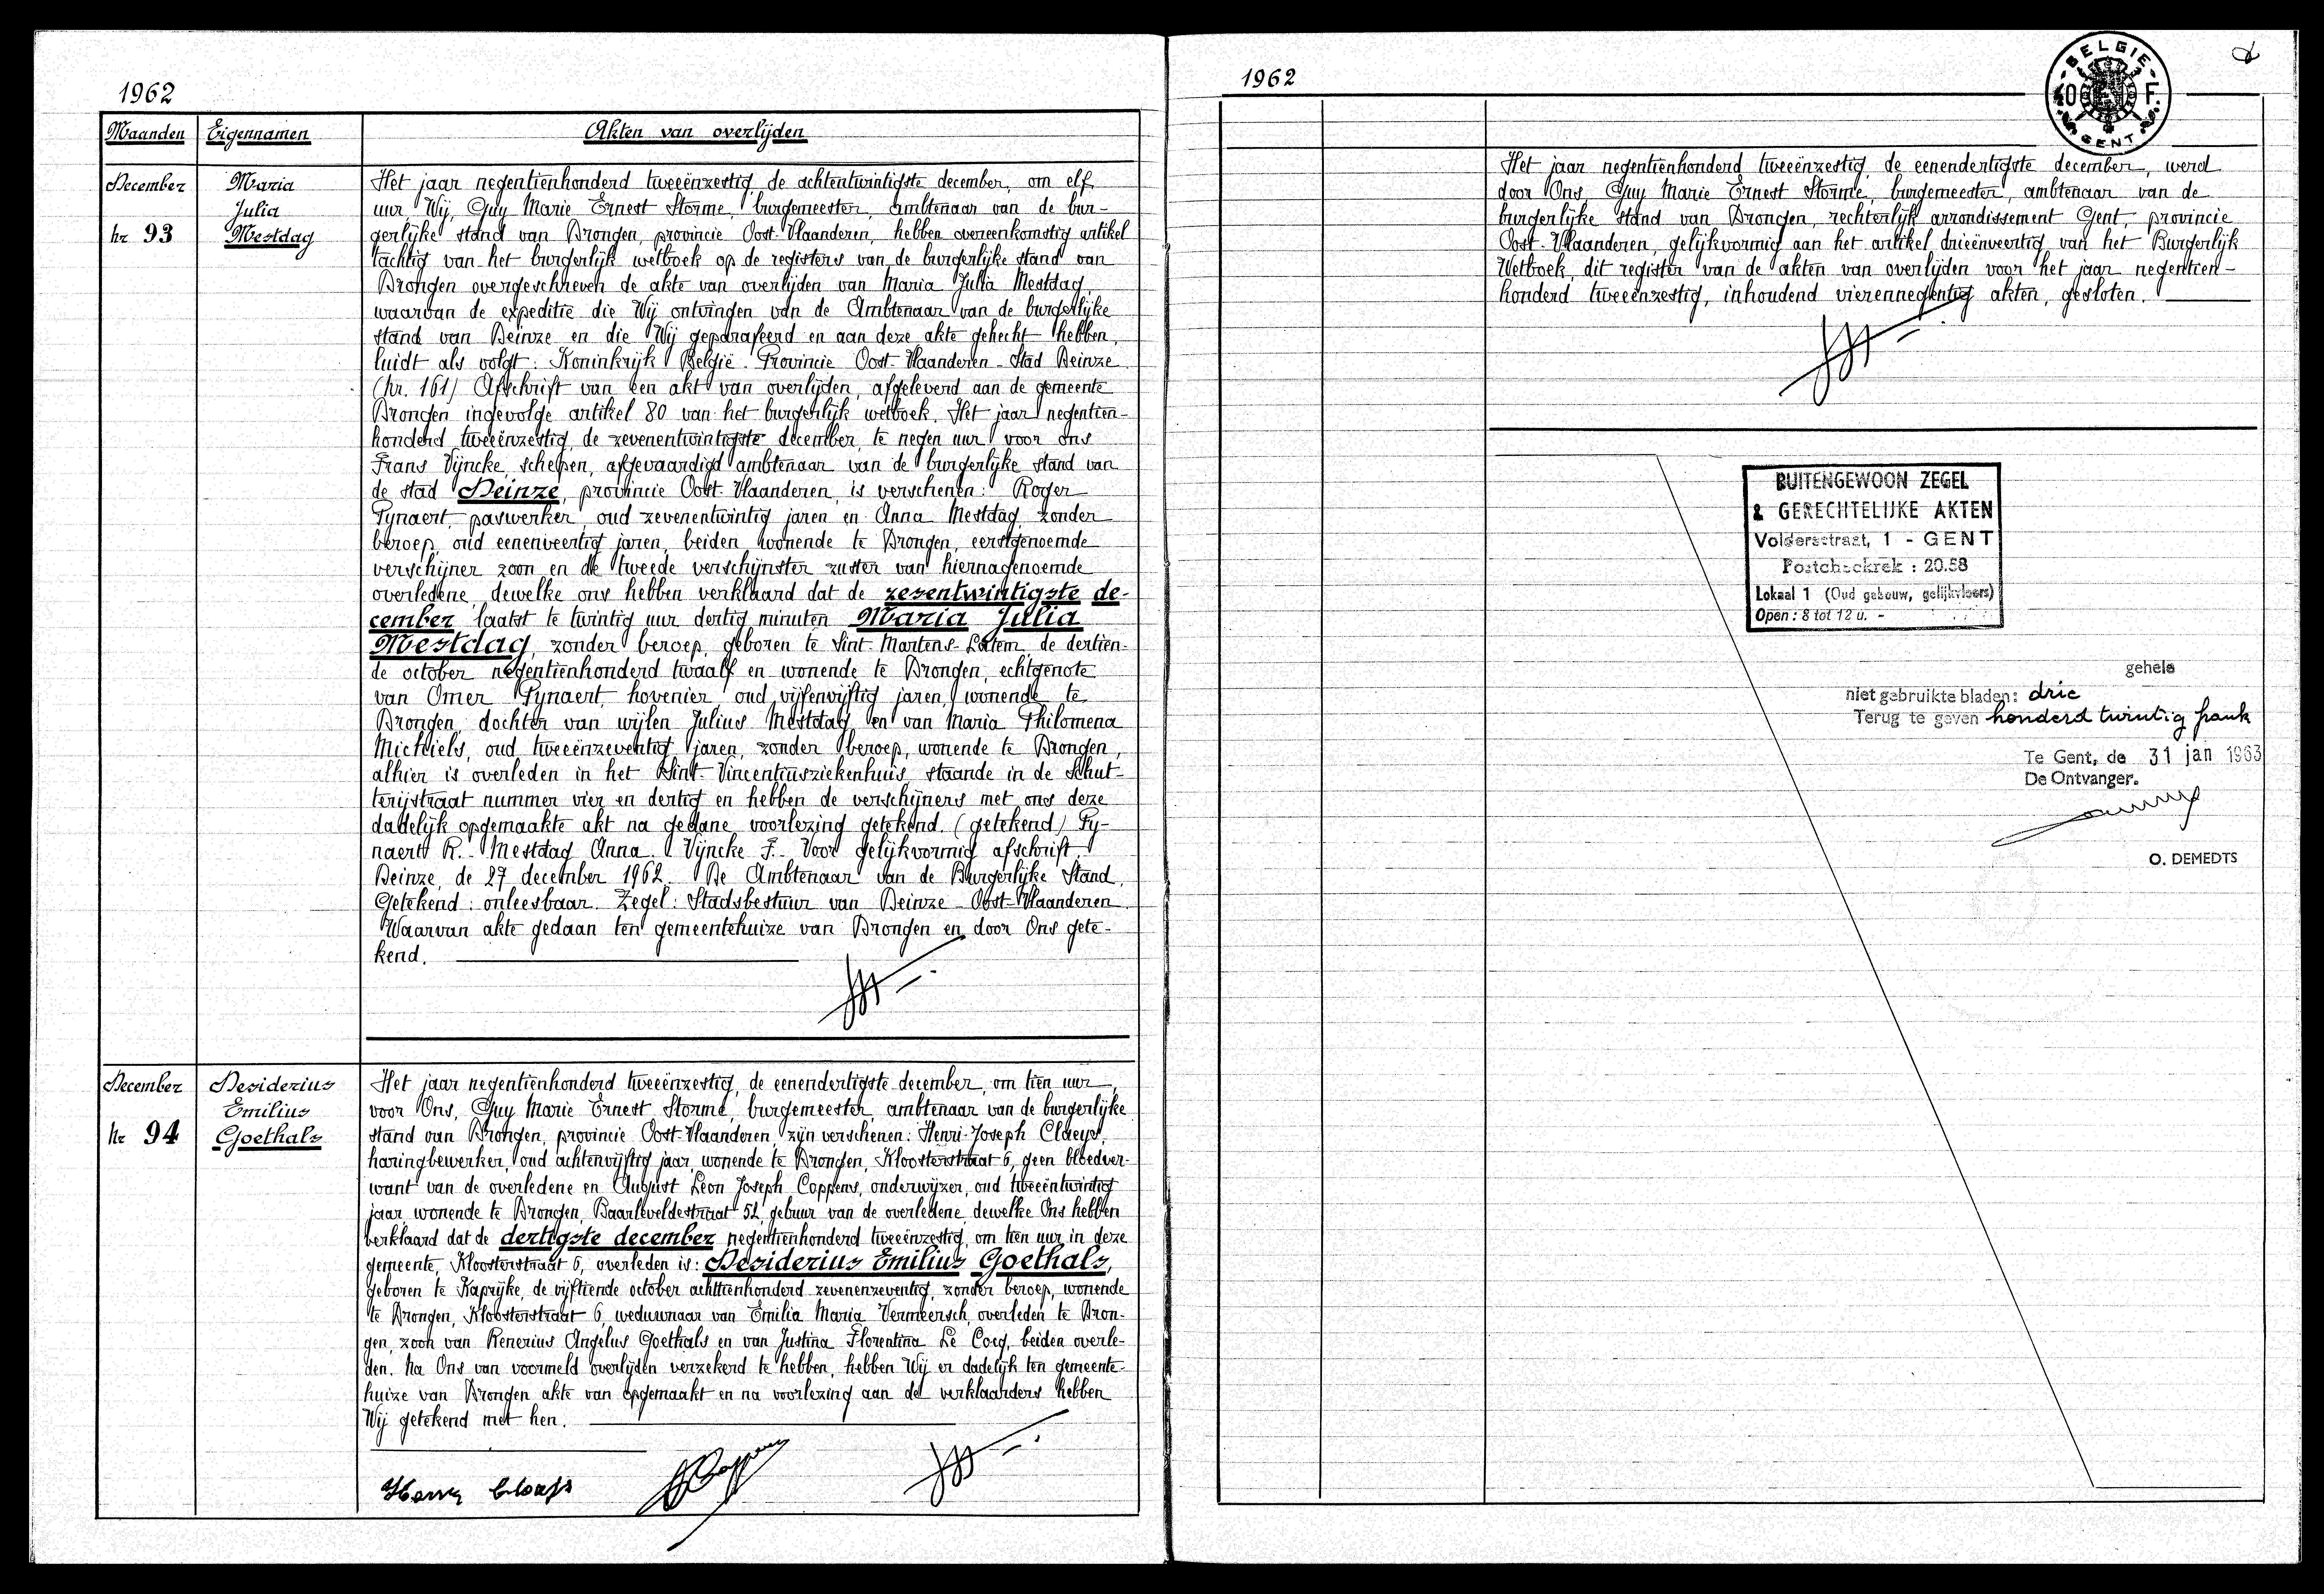 1962
Maanden Eigennamen Akten van overlijden
December
nr 93
Maria
Julia
Mestdag
Het jaar negentienhonderd tweeënzestig, de achtentwintigste december, om elf
uur, Wij, Guy Marie Ernest Storme, burgemeester, ambtenaar van de bur-
gerlijke stand van Drongen, provincie Oost-Vlaanderen, hebben overeenkomstig artikel
tachtig van het burgerlijk wetboek op de registers van de burgerlijke stand van
Drongen overgeschreven de akte van overlijden van Maria Julia Mestdag,
waarvan de expeditie die Wij ontvingen van de Ambtenaar van de burgerlijke
stand van Deinze en die Wij geparafeerd en aan deze akte gehecht hebben,
luidt als volgt: Koninkrijk België. Provincie Oost-Vlaanderen - Stad Deinze
(Nr. 161) Afschrift van een akt van overlijden, afgeleverd aan de gemeente
Drongen ingevolge artikel 80 van het burgerlijk wetboek. Het jaar negentien-
honderd tweeënzestig, de zevenentwintigste december, te negen uur voor ons
Frans Vijncke, schepen, afgevaardigd ambtenaar van de burgerlijke stand van
de stad Deinze, provincie Oost-Vlaanderen, is verschenen: Roger
Pynaert, paswerker, oud zevenentwintig jaren en Anna Mestdag, zonder
beroep, oud eenenveertig jaren, beiden wonende te Drongen, eerstgenoemde
verschijner zoon en de tweede verschijnster zuster van hiernagenoemde
overledene, dewelke ons hebben verklaard dat de zesentwintigste de-
cember laatst te twintig uur dertig minuten Maria Julia
Mestdag, zonder beroep, geboren te Sint-Martens-Latem, de dertien-
de october negentienhonderd twaalf en wonende te Drongen, echtgenote
van Omer Pynaert, hovenier, oud vijfenvijftig jaren, wonende te
Drongen, dochter van wijlen Julius Mestdag en van Maria Philomena
Michiels, oud tweeënzeventig jaren, zonder beroep, wonende te Drongen,
alhier is overleden in het Sint-Vincentiusziekenhuis, staande in de Schut-
terijstraat nummer vier en dertig en hebben de verschijners met ons deze
dadelijk opgemaakte akt na gedane voorlezing getekend. (getekend) Py-
naert R.- Mestdag Anna. Vijncke F.- Voor gelijkvormig afschrift,
Deinze, de 27 december 1962. De Ambtenaar van de Burgerlijke Stand,
Getekend: onleesbaar. Zegel: Stadsbestuur van Deinze - Oost-Vlaanderen.
Waarvan akte gedaan ten gemeentehuize van Drongen en door Ons gete-
kend.
December
Nr 94
Desiderius
Emilius
Goethals
Het jaar negentienhonderd tweeënzestig, de eenendertigste december, om tien uur,
voor Ons, Guy Marie Ernest Storme, burgemeester, ambtenaar van de burgerlijke
stand van Drongen, provincie Oost-Vlaanderen, zijn verschenen: Henri-Joseph Claeys,
haringbewerker, oud achtenvijftig jaar, wonende te Drongen, Kloosterstraat 6, geen bloedver-
want van de overledene en August Leon Joseph Coppens, onderwijzer, oud tweeëntwintig
jaar wonende te Drongen, Baarleveldestraat 52, gebuur van de overledene, dewelke Ons hebben
verklaard dat de dertigste december negentienhonderd tweeënzestig, om tien uur in deze
gemeente, Kloosterstraat 6, overleden is: Desiderius Emilius Goethals,
geboren te Kaprijke, de vijftiende october achttienhonderd zevenenzeventig, zonder beroep, wonende
te Drongen, Kloosterstraat 6, weduwnaar van Emilia Maria Vermeersch, overleden te Dron-
gen, zoon van Renerius Angelus Goethals en van Justina Florentina Le Cocq, beiden overle-
den. Na Ons van voormeld overlijden verzekerd te hebben, hebben Wij er dadelijk ten gemeente-
huize van Drongen akte van opgemaakt en na voorlezing aan de verklaarders hebben
Wij getekend met hen.
1962
BELGIE
40 F.
GENT
Het jaar negentienhonderd tweeënzestig, de eenendertigste december, werd
door Ons, Guy Marie Ernest Storme, burgemeester, ambtenaar van de
burgerlijke stand van Drongen, rechterlijk arrondissement Gent, provincie
Oost-Vlaanderen, gelijkvormig aan het artikel drieënveertig van het Burgerlijk
Wetboek, dit register van de akten van overlijden voor het jaar negentien-
honderd tweeënzestig, inhoudend vierennegentig akten, gesloten.
BUITENGEWOON ZEGEL
& GERECHTELIJKE AKTEN
Voldersstraat, 1 - GENT
Postcheckrek : 20.58
Lokaal 1 (Oud gebouw, gelijkvloers)
Open : 8 tot 12 u. -
gehele
niet gebruikte bladen: drie
Terug te geven honderd twintig frank
Te Gent, de 31 jan 1963
De Ontvanger.
O. DEMEDTS